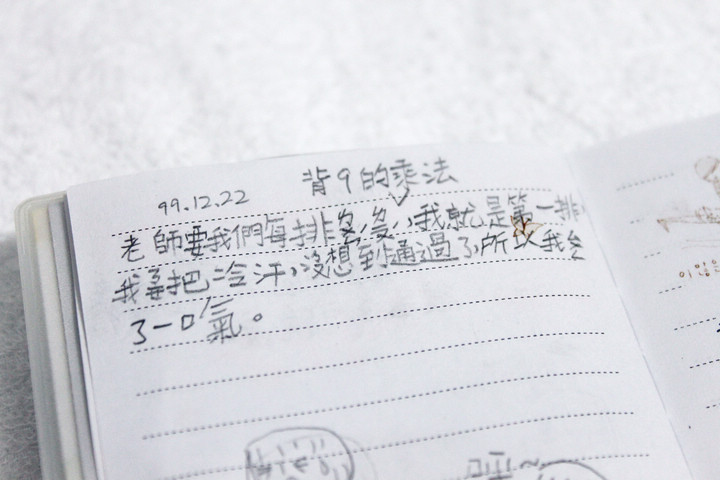 99.12.22 背9的乘法
老師要我們每排 後,我就是第一排,
我 把冷汗,沒想到通過了,所以我
了一口氣。